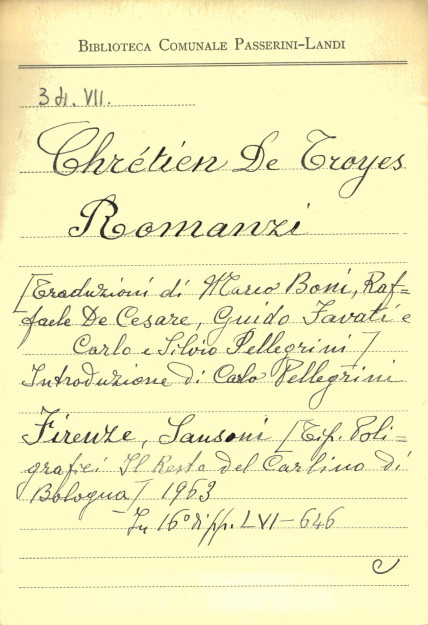 BIBLIOTECA COMUNALE PASSERINI-LANDI
3 di. VII.
Chrétien De Troyes
Romanzi
[Traduzioni di Marco Boni, Raf=
faele De Cesare, Guido Favati e
Carlo e Silvio Pellegrini]
Introduzione di Carlo Pellegrini
Firenze, Sansoni [Tip. Poli=
grafici Il Resto del Carlino di
Bologna] 1963
In 16° di pp. LVI-646